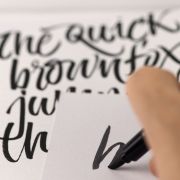 the quick
brown fox
ju
th
h